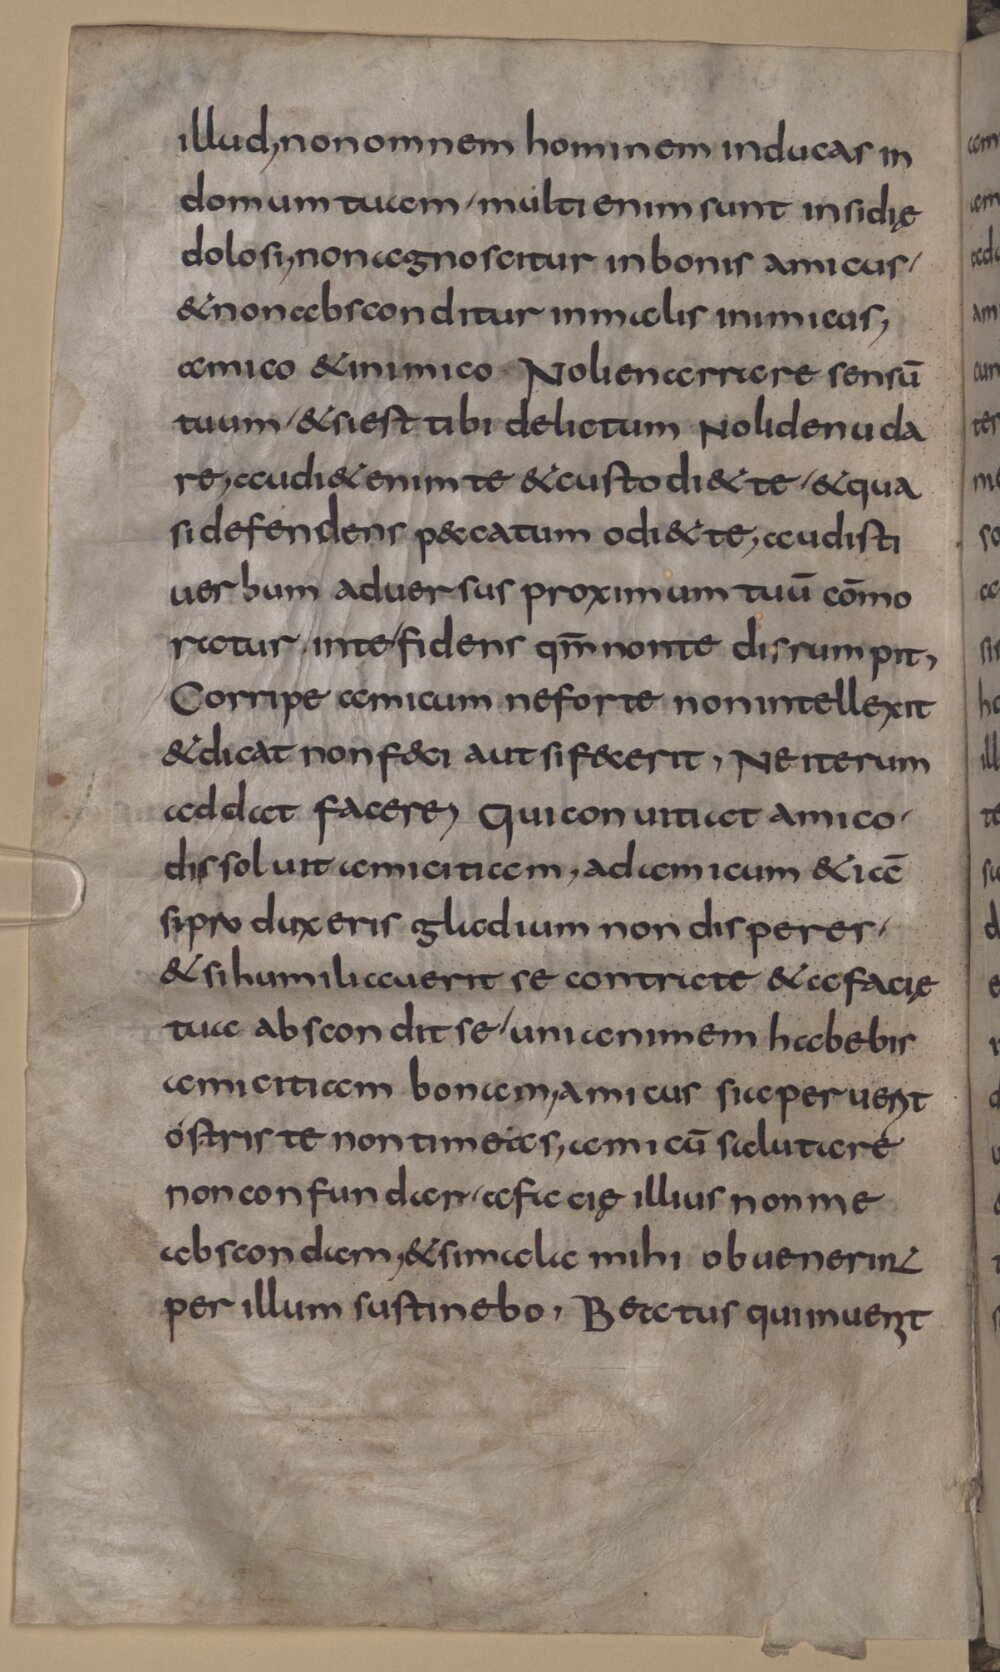 illud, non omnem hominem inducas in
domum tuam / multi enim sunt insidię
dolosi, non agnoscitur in bonis amicus /
& non abscon ditur in malis inimicus,
amico & inimico Noli enarrare sensū
tuum / & si est tibi delictum Noli denuda
re, audi& enim te & custodi& te / & qua
si defendens p&catum odi& te, audisti
uerbum aduersus proximum tuū cōmo
riatur inte / fidens qm̄ non te disrumpit,
Corripe amicum ne forte non intellexit
& dicat non f&ci aut si f&cerit, Ne iterum
addat facere, Qui conuitiat amico /
dissoluit amicitiam, ad amicum & iā
si produxeris gladium non disperes /
& si humiliauerit se contrate & a facię
tua abscondit se / unianimem habebis
amicitiam bonam, amicus sia peruenit
ostris te non timeas, amicū salutare
non confundar / a facię illius non me
abscondam, & si mala mihi obuenerint
per illum sustinebo, Beatus qui inuenit